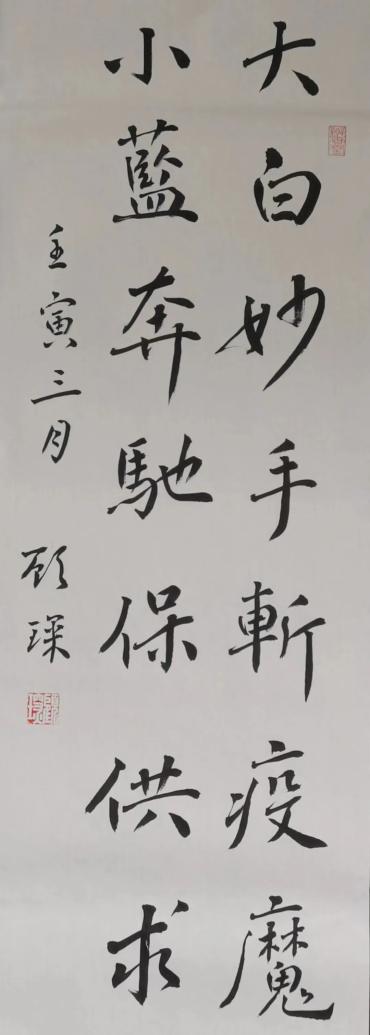 大白妙手斬疫魔
小藍奔馳保供求
壬寅三月
顾琛